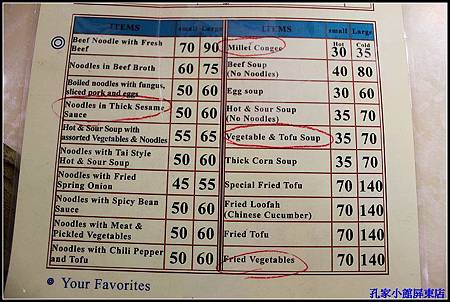 ITEMS small Large
Beef Noodle with Fresh
Beef 70 90
Noodles in Beef Broth 60 75
Boiled noodles with fungus,
sliced pork and eggs 50 60
Noodles in Thick Sesame
Sauce 50 60
Hot & Sour Soup with
assorted Vegetables & Noodles 55 65
Noodles with Tai Style
Hot & Sour Soup 50 60
Noodles with Fried
Spring Onion 45 55
Noodles with Spicy Bean
Sauce 50 60
Noodles with Meat &
Pickled Vegetables 50 60
Noodles with Chili Pepper
and Tofu 50 60
ITEMS small Large
Millet Congee Hot 30 Cold 35
Beef Soup
(No Noodles) 40 80
Egg soup 30 60
Hot & Sour Soup
(No Noodles) 35 70
Vegetable & Tofu Soup 35 70
Thick Corn Soup 35 70
Special Fried Tofu 70 140
Fried Loofah
(Chinese Cucumber) 70 140
Fried Tofu 70 140
Fried Vegetables 70 140
Your Favorites
孔家小館屏東店